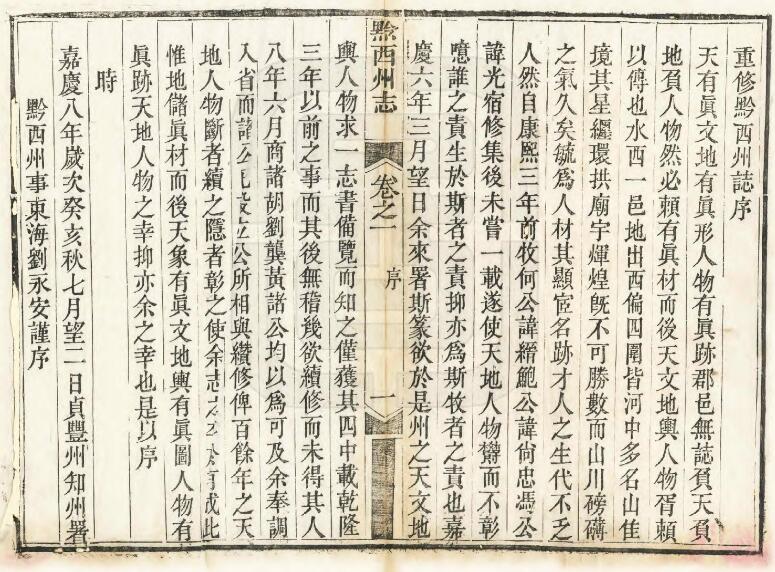 重修黔西州誌序
天有眞文地有眞形人物有眞跡郡邑無誌負天負
地負人物然必頼有眞材而後天文地輿人物胥頼
以傳也水西一邑地出西偏四圍皆河中多名山佳
境其星纒環拱廟宇煇煌旣不可勝數而山川磅礴
之氣久矣毓爲人材其顯宦名跡才人之生代不乏
人然自康熙三年前牧何公諱縉鮑公諱尙忠馮公
諱光宿修集後未嘗一載遂使天地人物欝而不彰
噫誰之責生於斯者之責抑亦爲斯牧者之責也嘉
慶六年三月望日余來署斯篆欲於是州之天文地
黔西州志
卷之一
序
一
輿人物求一志書備覽而知之僅獲其四中載乾隆
三年以前之事而其後無稽㡬欲續修而未得其人
八年六月商諸胡劉龔黃諸公均以爲可及余奉調
入省而諸公所相與纘修俾百餘年之天
地人物斷者續之隱者彰之使余志此
惟地儲眞材而後天象有眞文地輿有眞圖人物有
眞跡天地人物之幸抑亦余之幸也是以序
時
嘉慶八年歲次癸亥秋七月望二日貞豐州知州署
黔西州事東海劉永安謹序